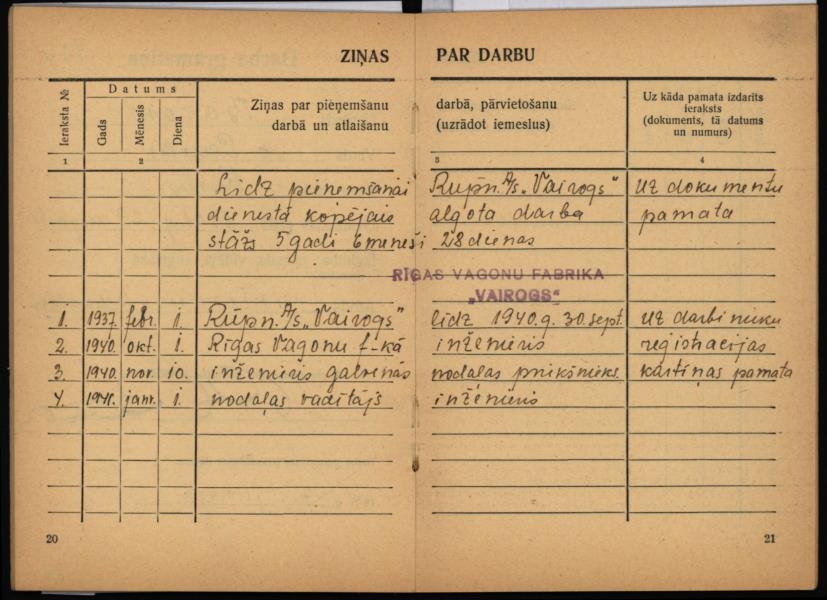 ZIŅAS PAR DARBU
Ieraksta №
Datums
Gads
Mēnesis
Diena
Ziņas par pieņemšanu darbā, pārvietošanu
darbā un atlaišanu (uzrādot iemeslus)
Uz kāda pamata izdarīts
ieraksts
(dokuments, tā datums
un numurs)
1 2 3 4
Līdz pieņemšanai Rūpn. A/s „Vairogs" uz dokumentu
dienestā kopējais algota darba pamata
stāžs 5 gadi 6 meneši 28 dienas
RĪGAS VAGONU FABRIKA
„VAIROGS"
1. 1937. febr. 1. Rūpn. A/s „Vairogs" līdz 1940.g. 30.sept. uz darbinieku
2. 1940. okt. 1. Rīgas Vagonu f-kā inženieris registracijas
3. 1940. nov. 10. inženieris galvenās nodaļas priekšnieks. kartiņas pamata
4. 1941. janv. 1. nodaļas vadītājs inženieris
20
21